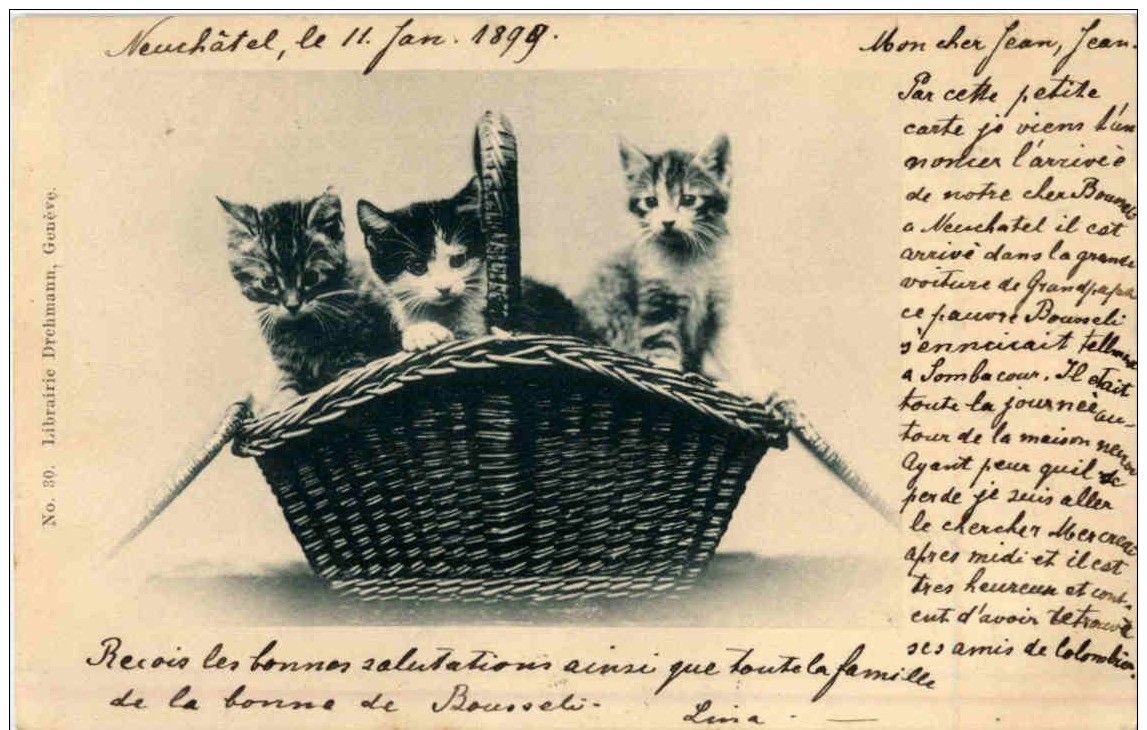 Neuchâtel, le 11. Jan. 1899.
Mon cher Jean, Jean.
Par cette petite
carte je viens t'an
noncer l'arriveè
de notre cher Bousseli
a Neuchatel il est
arrivè dans la grande
voiture de Grandpapa
ce pauvre Bousseli
s'ennuiait tellement
a Sombacour. Il etait
toute la journeè au-
tour de la maison
Ayant peur quil se
perde je suis aller
le chercher Mercredi
apres midi et il est
tres heureux et cont-
ent d'avoir retrouvè
ses amis de Colombier.
Recois les bonnes salutations ainsi que toute la famille
de la bonne de Bousseli.
Lina.
No. 30. Librairie Drehmann, Genève.